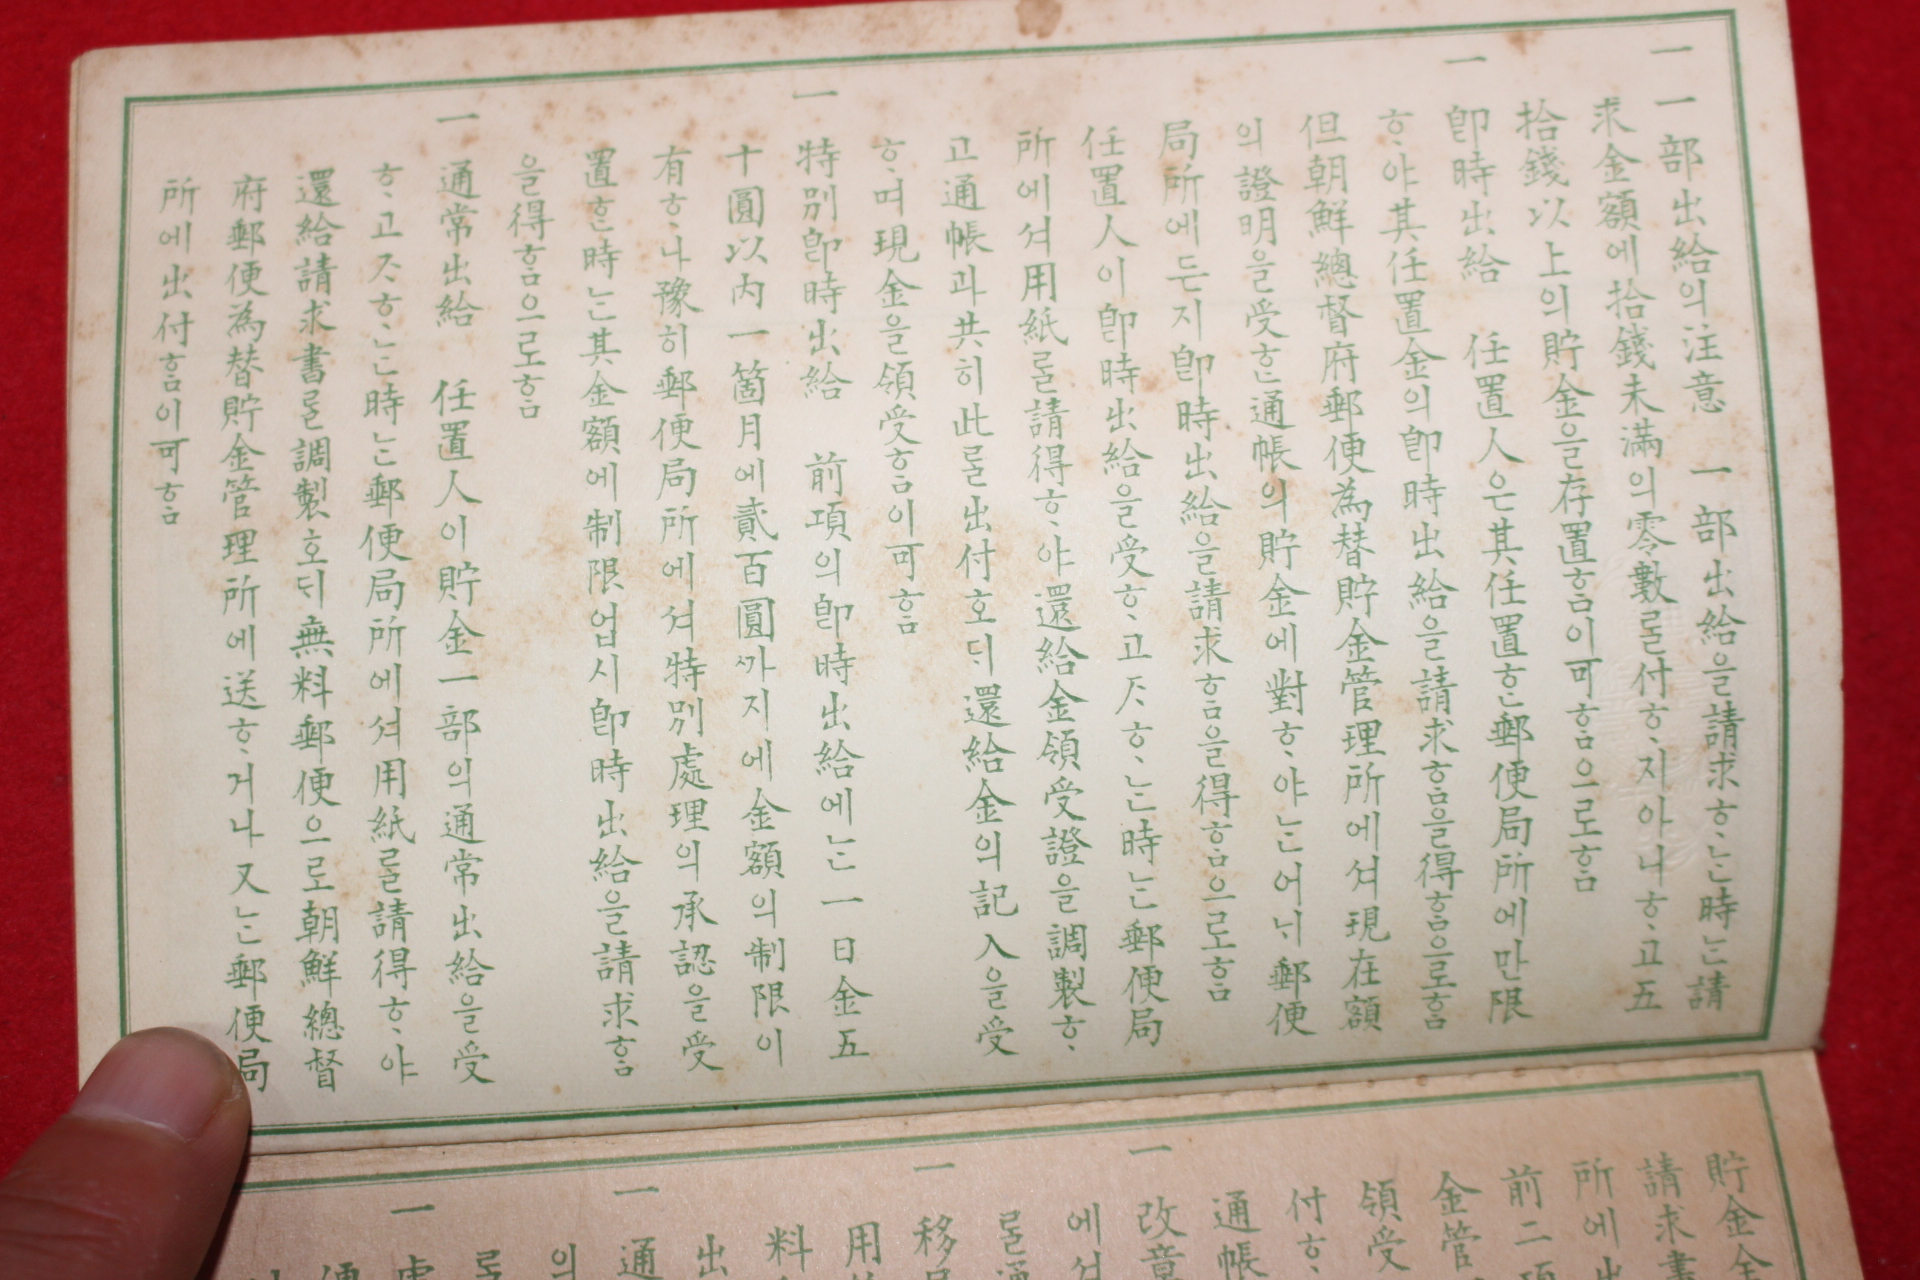 一 一部出給의注意 一部出給을請求ᄒᆞᄂᆞᆫ時ᄂᆞᆫ請
求金額에拾錢未滿의零數ᄅᆞᆯ付ᄒᆞ지아니ᄒᆞ고五
拾錢以上의貯金을存置ᄒᆞᆷ이可ᄒᆞᆷ으로ᄒᆞᆷ
一 卽時出給 任置人은其任置ᄒᆞᆫ郵便局所에만限
ᄒᆞ야其任置金의卽時出給을請求ᄒᆞᆷ을得ᄒᆞᆷ으로ᄒᆞᆷ
但朝鮮總督府郵便為替貯金管理所에셔現在額
의證明을受ᄒᆞᆫ通帳의貯金에對ᄒᆞ야ᄂᆞᆫ어ᄂᆡ郵便
局所에든지卽時出給을請求ᄒᆞᆷ을得ᄒᆞᆷ으로ᄒᆞᆷ
任置人이卽時出給을受ᄒᆞ고ᄌᆞᄒᆞᄂᆞᆫ時ᄂᆞᆫ郵便局
所에셔用紙ᄅᆞᆯ請得ᄒᆞ야還給金領受證을調製ᄒᆞ
고通帳과共히此ᄅᆞᆯ出付호ᄃᆡ還給金의記入을受
ᄒᆞ며現金을領受ᄒᆞᆷ이可ᄒᆞᆷ
一 特別卽時出給 前項의卽時出給에ᄂᆞᆫ一日金五
十圓以內一箇月에貳百圓ᄭᆞ지에金額의制限이
有ᄒᆞ나豫히郵便局所에셔特別處理의承認을受
置ᄒᆞᆫ時ᄂᆞᆫ其金額에制限업시卽時出給을請求ᄒᆞᆷ
을得ᄒᆞᆷ으로ᄒᆞᆷ
一 通常出給 任置人이貯金一部의通常出給을受
ᄒᆞ고ᄌᆞᄒᆞᄂᆞᆫ時ᄂᆞᆫ郵便局所에셔用紙ᄅᆞᆯ請得ᄒᆞ야
還給請求書ᄅᆞᆯ調製호ᄃᆡ無料郵便으로朝鮮總督
府郵便為替貯金管理所에送ᄒᆞ거나又ᄂᆞᆫ郵便局
所에出付ᄒᆞᆷ이可ᄒᆞᆷ
貯金
請求書
所에出
前二項
金管
領受
付ᄒᆞ
通帳
一 改意
에셔
ᄅᆞᆯ通
一 移
用
料
出
一 通
의
로
一
便